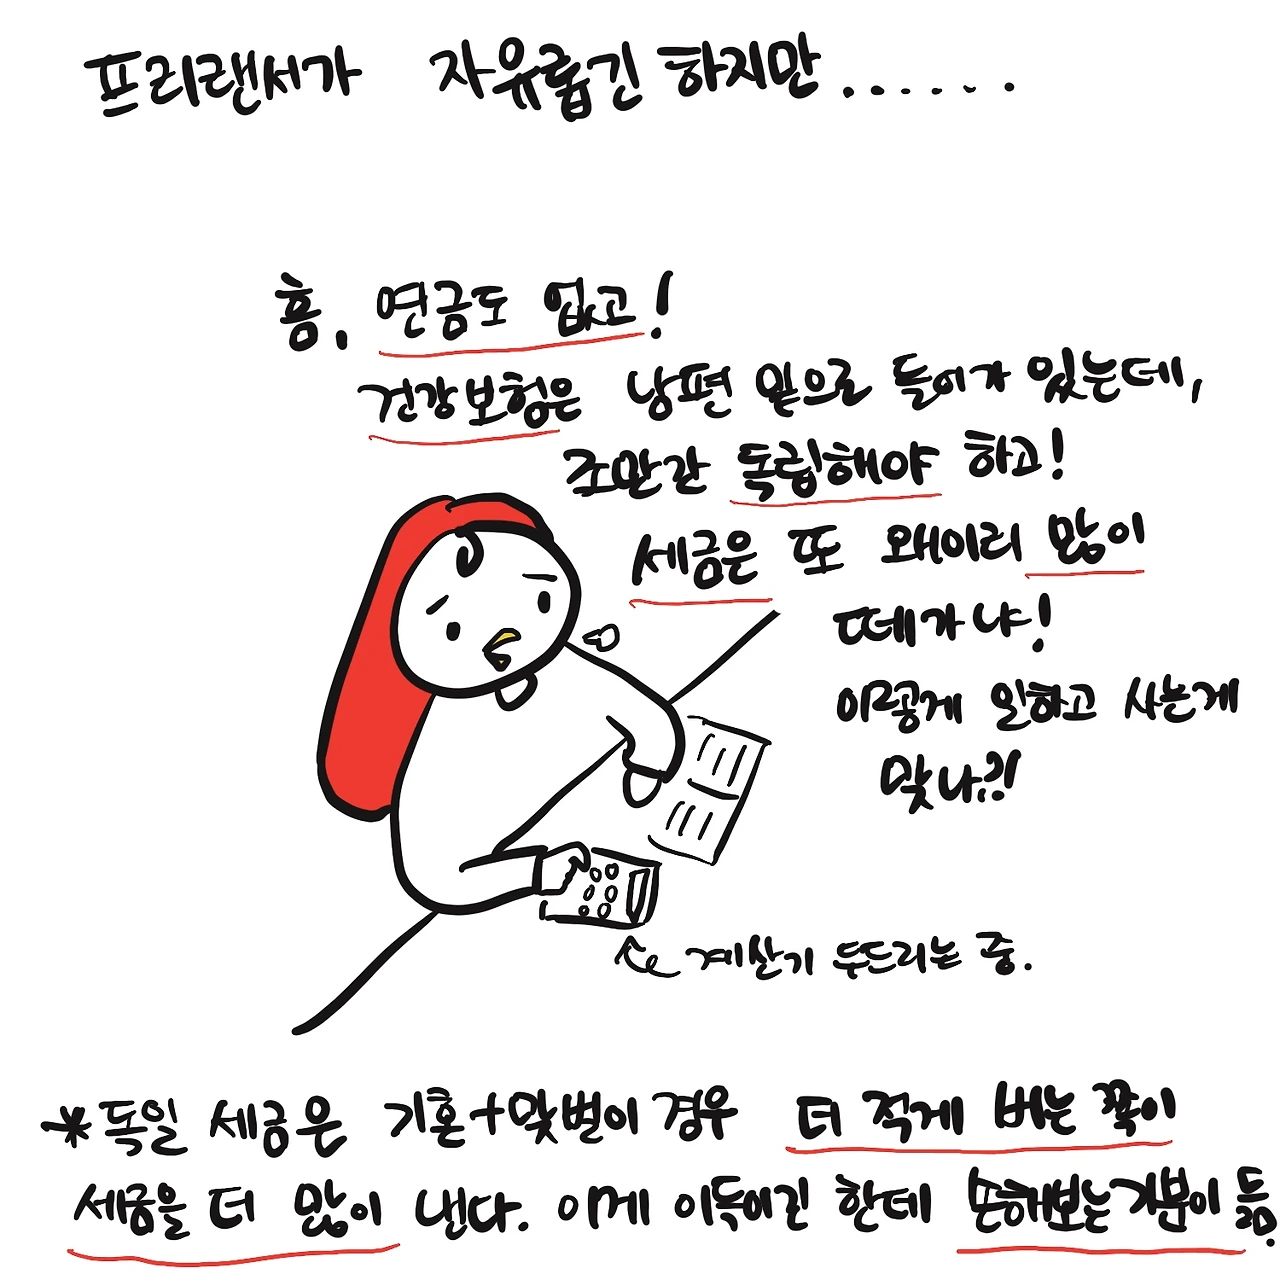 프리랜서가 자유롭긴 하지만......
흠, 연금도 없고!
건강보험은 남편 밑으로 들어가 있는데,
조만간 독립해야 하고!
세금은 또 왜이리 많이
떼가냐!
이렇게 일하고 사는게
맞나?!
계산기 두드리는 중.
*독일 세금은 기혼+맞벌이 경우 더 적게 버는 쪽이
세금을 더 많이 낸다. 이게 이득이긴 한데 손해보는 기분이 듬.